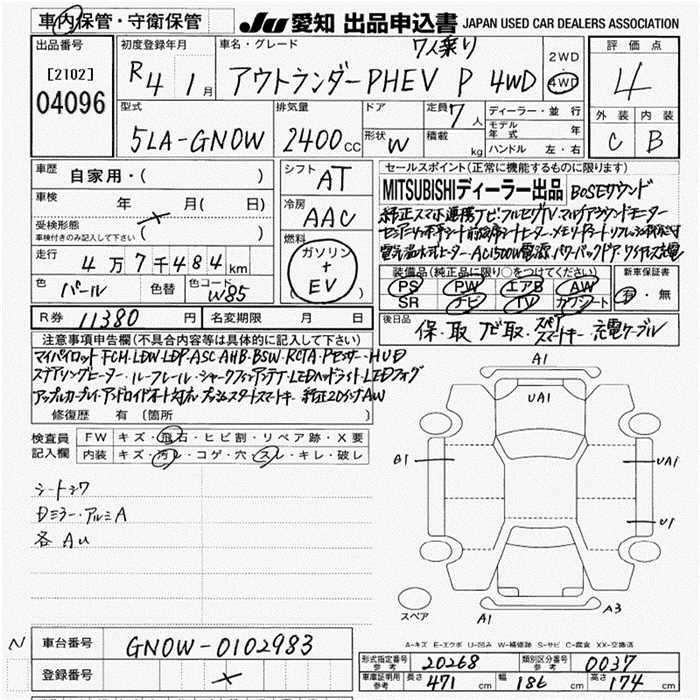 車内保管・守衛保管
JU 愛知 出品申込書 JAPAN USED CAR DEALERS ASSOCIATION
出品番号
[2102]
04096
初度登録年月
R4 1月
車名・グレード
7人乗り
アウトランダーPHEV P 4WD
2WD
4WD
評価点
4
外装 内装
C B
型式
5LA-GN0W
排気量
2400CC
ドア
形状 W
定員 7人
積載 kg
ディーラー・並行
モデル年式 年
ハンドル 左・右
車歴 自家用・( )
車検 年 月( 日)
受検形態
車検付きのみ記入して下さい ( )
走行 4万7千484km
色 パール 色替 色コード W85
シフト AT
冷房 AAC
燃料
ガソリン
+
EV
セールスポイント(正常に機能するものに限ります)
MITSUBISHIディーラー出品 BOSEサウンド
純正スマホ連携ナビ・フルセグTV・マルチアラウンドモニター
電気温水式ヒーター・AC1500W電源・パワーバックドア・ワイヤレス充電
装備品(純正品に限り○をつけてください)
PS PW エアB AW
SR ナビ TV カワシート
新車保証書
有・無
R券 11380円
名変期限 月 日
後日品
保・取 ナビ取・スペア
スマートキー・充電ケーブル
注意事項申告欄(不具合内容等は具体的に記入して下さい)
マイパイロット・FCH・LDW・LDP・ASC・AHB・BSW・RCTA・Pセンサー・HUD
ステアリングヒーター・ルーフレール・シャークフィンアンテナ・LEDヘッドライト・LEDフォグ
アップルカープレイ・アンドロイドオート対応 プッシュスタートスマートキー 純正20インチAW
修復歴 有 〔箇所 〕
検査員
記入欄
FW キズ・飛石・ヒビ割・リペア跡・X要
内装 キズ・汚レ・コゲ・穴・スレ・キレ・破レ
シートシワ
Dミラー・アルミA
各AU
A1
UA1
B1
UA1
U1
A1
A3
スペア
A-キズ E-エクボ U-凹み W-補修跡 S-サビ C-腐食 XX-交換済
N
車台番号 GN0W-0102983
登録番号
型式指定番号
参考 20268
類別区分番号
参考 0037
車庫証明用
参考 長さ 471cm 幅 186cm 高さ 174cm